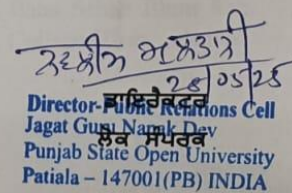 28/05/25
ਡਾਇਰੈਕਟਰ
Director-Public Relations Cell
Jagat Guru Nanak Dev
ਲੋਕ ਸੰਪਰਕ
Punjab State Open University
Patiala – 147001(PB) INDIA